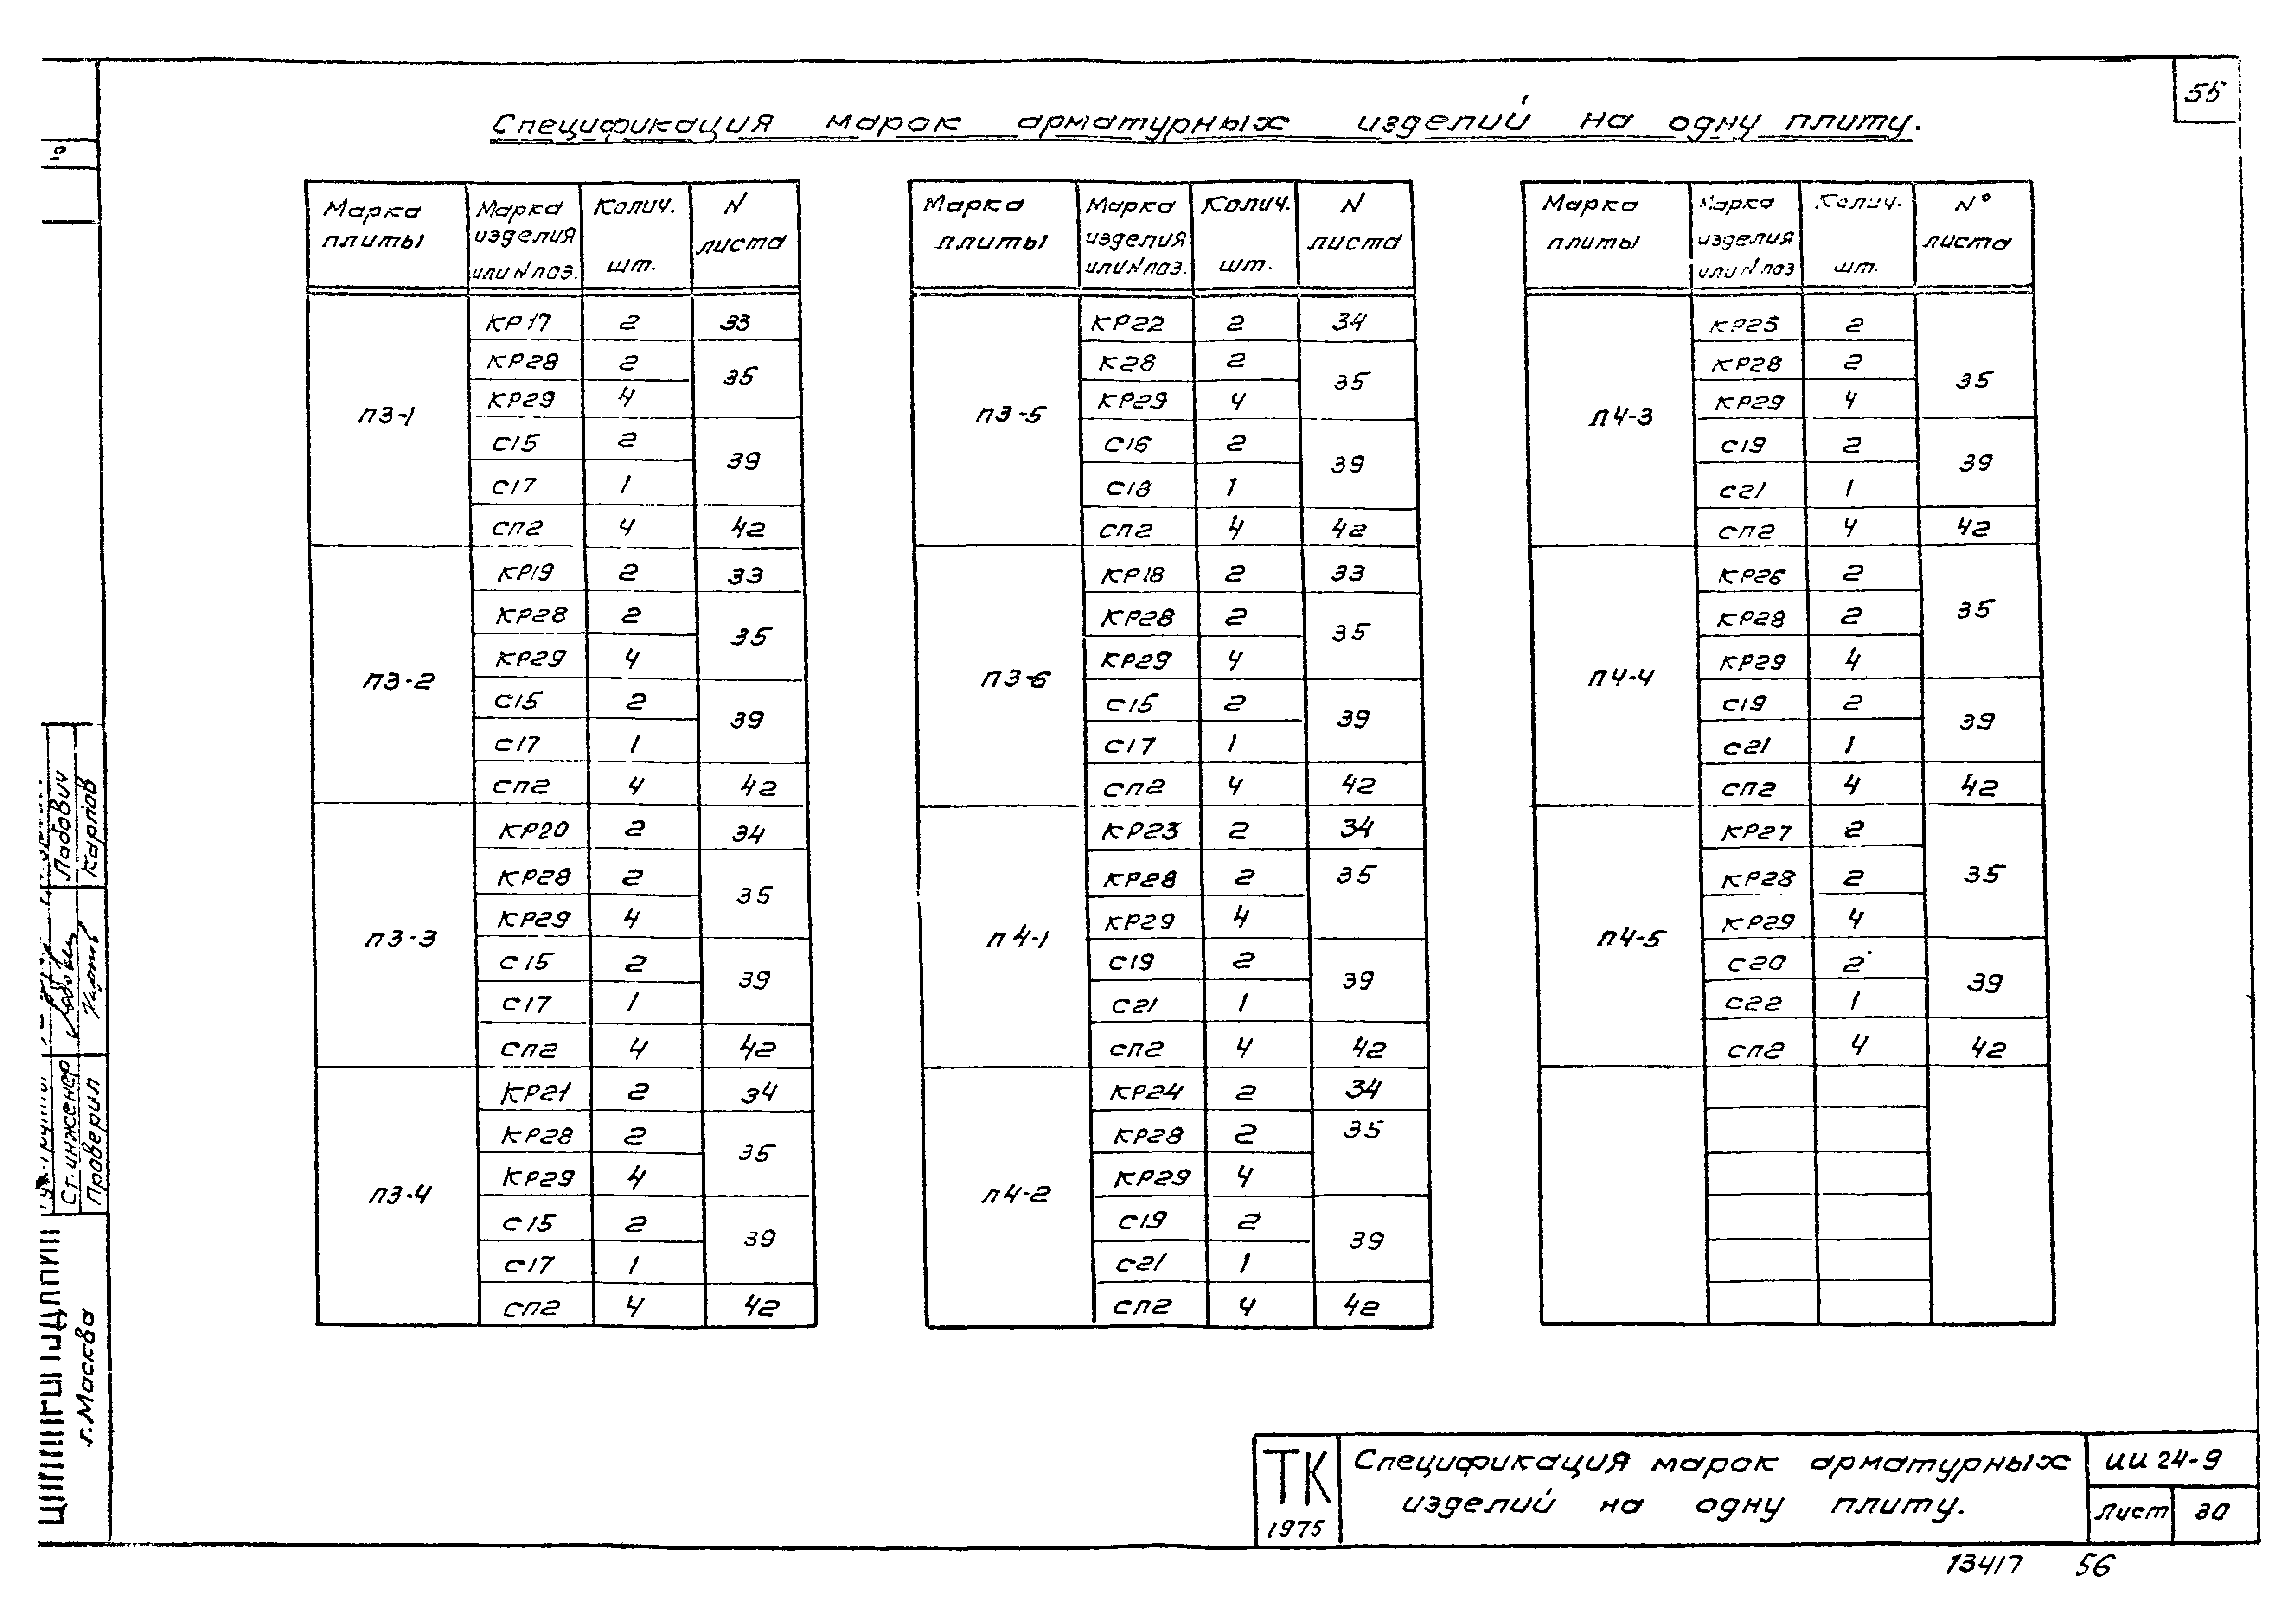 55
Спецификация марок арматурных изделий на одну плиту.
Марка плиты | Марка изделия или N поз. | Колич. шт. | N листа
П3-1 | КР17 | 2 | 33
КР28 | 2 | 35
КР29 | 4
С15 | 2 | 39
С17 | 1
СП2 | 4 | 42
П3-2 | КР19 | 2 | 33
КР28 | 2 | 35
КР29 | 4
С15 | 2 | 39
С17 | 1
СП2 | 4 | 42
П3-3 | КР20 | 2 | 34
КР28 | 2 | 35
КР29 | 4
С15 | 2 | 39
С17 | 1
СП2 | 4 | 42
П3-4 | КР21 | 2 | 34
КР28 | 2 | 35
КР29 | 4
С15 | 2 | 39
С17 | 1
СП2 | 4 | 42
Марка плиты | Марка изделия или N поз. | Колич. шт. | N листа
П3-5 | КР22 | 2 | 34
К28 | 2 | 35
КР29 | 4
С16 | 2 | 39
С18 | 1
СП2 | 4 | 42
П3-6 | КР18 | 2 | 33
КР28 | 2 | 35
КР29 | 4
С15 | 2 | 39
С17 | 1
СП2 | 4 | 42
П4-1 | КР23 | 2 | 34
КР28 | 2 | 35
КР29 | 4
С19 | 2 | 39
С21 | 1
СП2 | 4 | 42
П4-2 | КР24 | 2 | 34
КР28 | 2 | 35
КР29 | 4
С19 | 2 | 39
С21 | 1
СП2 | 4 | 42
Марка плиты | Марка изделия или N поз | Колич. шт. | N° листа
П4-3 | КР25 | 2 | 35
КР28 | 2
КР29 | 4
С19 | 2 | 39
С21 | 1
СП2 | 4 | 42
П4-4 | КР26 | 2 | 35
КР28 | 2
КР29 | 4
С19 | 2 | 39
С21 | 1
СП2 | 4 | 42
П4-5 | КР27 | 2 | 35
КР28 | 2
КР29 | 4
С20 | 2 | 39
С22 | 1
СП2 | 4 | 42
Ст. инженер Лабович
Проверил Карпов
г. Масква
ТК
1975
Спецификация марок арматурных
изделий на одну плиту.
ИИ 24-9
Лист 30
13417 56